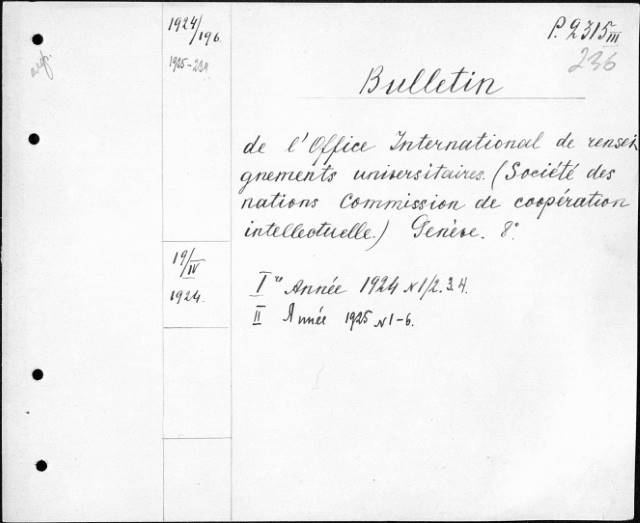 1924/196.
1925-234
P. 2315 III
236
Bulletin
de l'Office International de rensei
gnements universitaires. (Société des
nations Commission de coopération
intellectuelle.) Genève. 8°
19/IV
1924.
I re Année 1924 N 1/2. 3. 4.
II Année 1925 N 1-6.